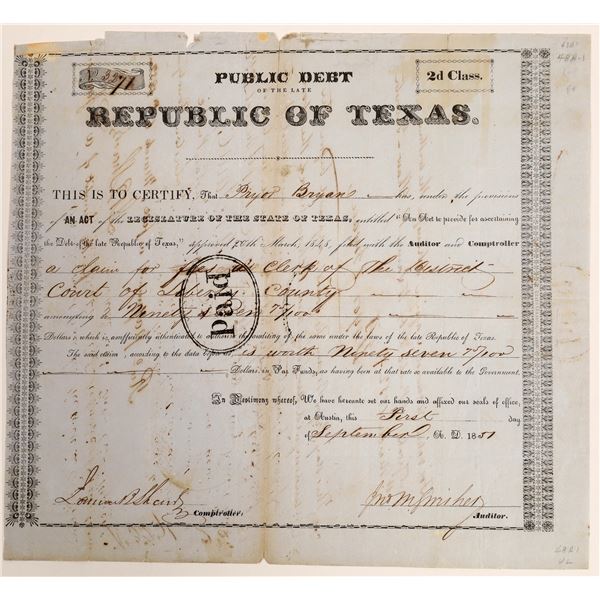 No 3271
PUBLIC DEBT
2d Class.
OF THE LATE
REPUBLIC OF TEXAS.
THIS IS TO CERTIFY, That Pryor Bryan has, under the provisions
of AN ACT of the LEGISLATURE OF THE STATE OF TEXAS, entitled "An Act to provide for ascertaining
the Debt of the late Republic of Texas," approved 20th March, 1848, filed with the Auditor and Comptroller
a claim for fees as Clerk of the District
Court of Liberty County
amounting to Ninety seven /100
Dollars; which is sufficiently authenticated to authorize the auditing of the same under the laws of the late Republic of Texas.
The said claim, according to the data before us is worth Ninety seven /100
Dollars, in Par Funds, as having been at that rate so available to the Government.
paid
In Testimony whereof, We have hereunto set our hands and affixed our seals of office,
at Austin, this First day
of September A. D. 1851
James B Shaw
Comptroller.
Jno M Swisher
Auditor.